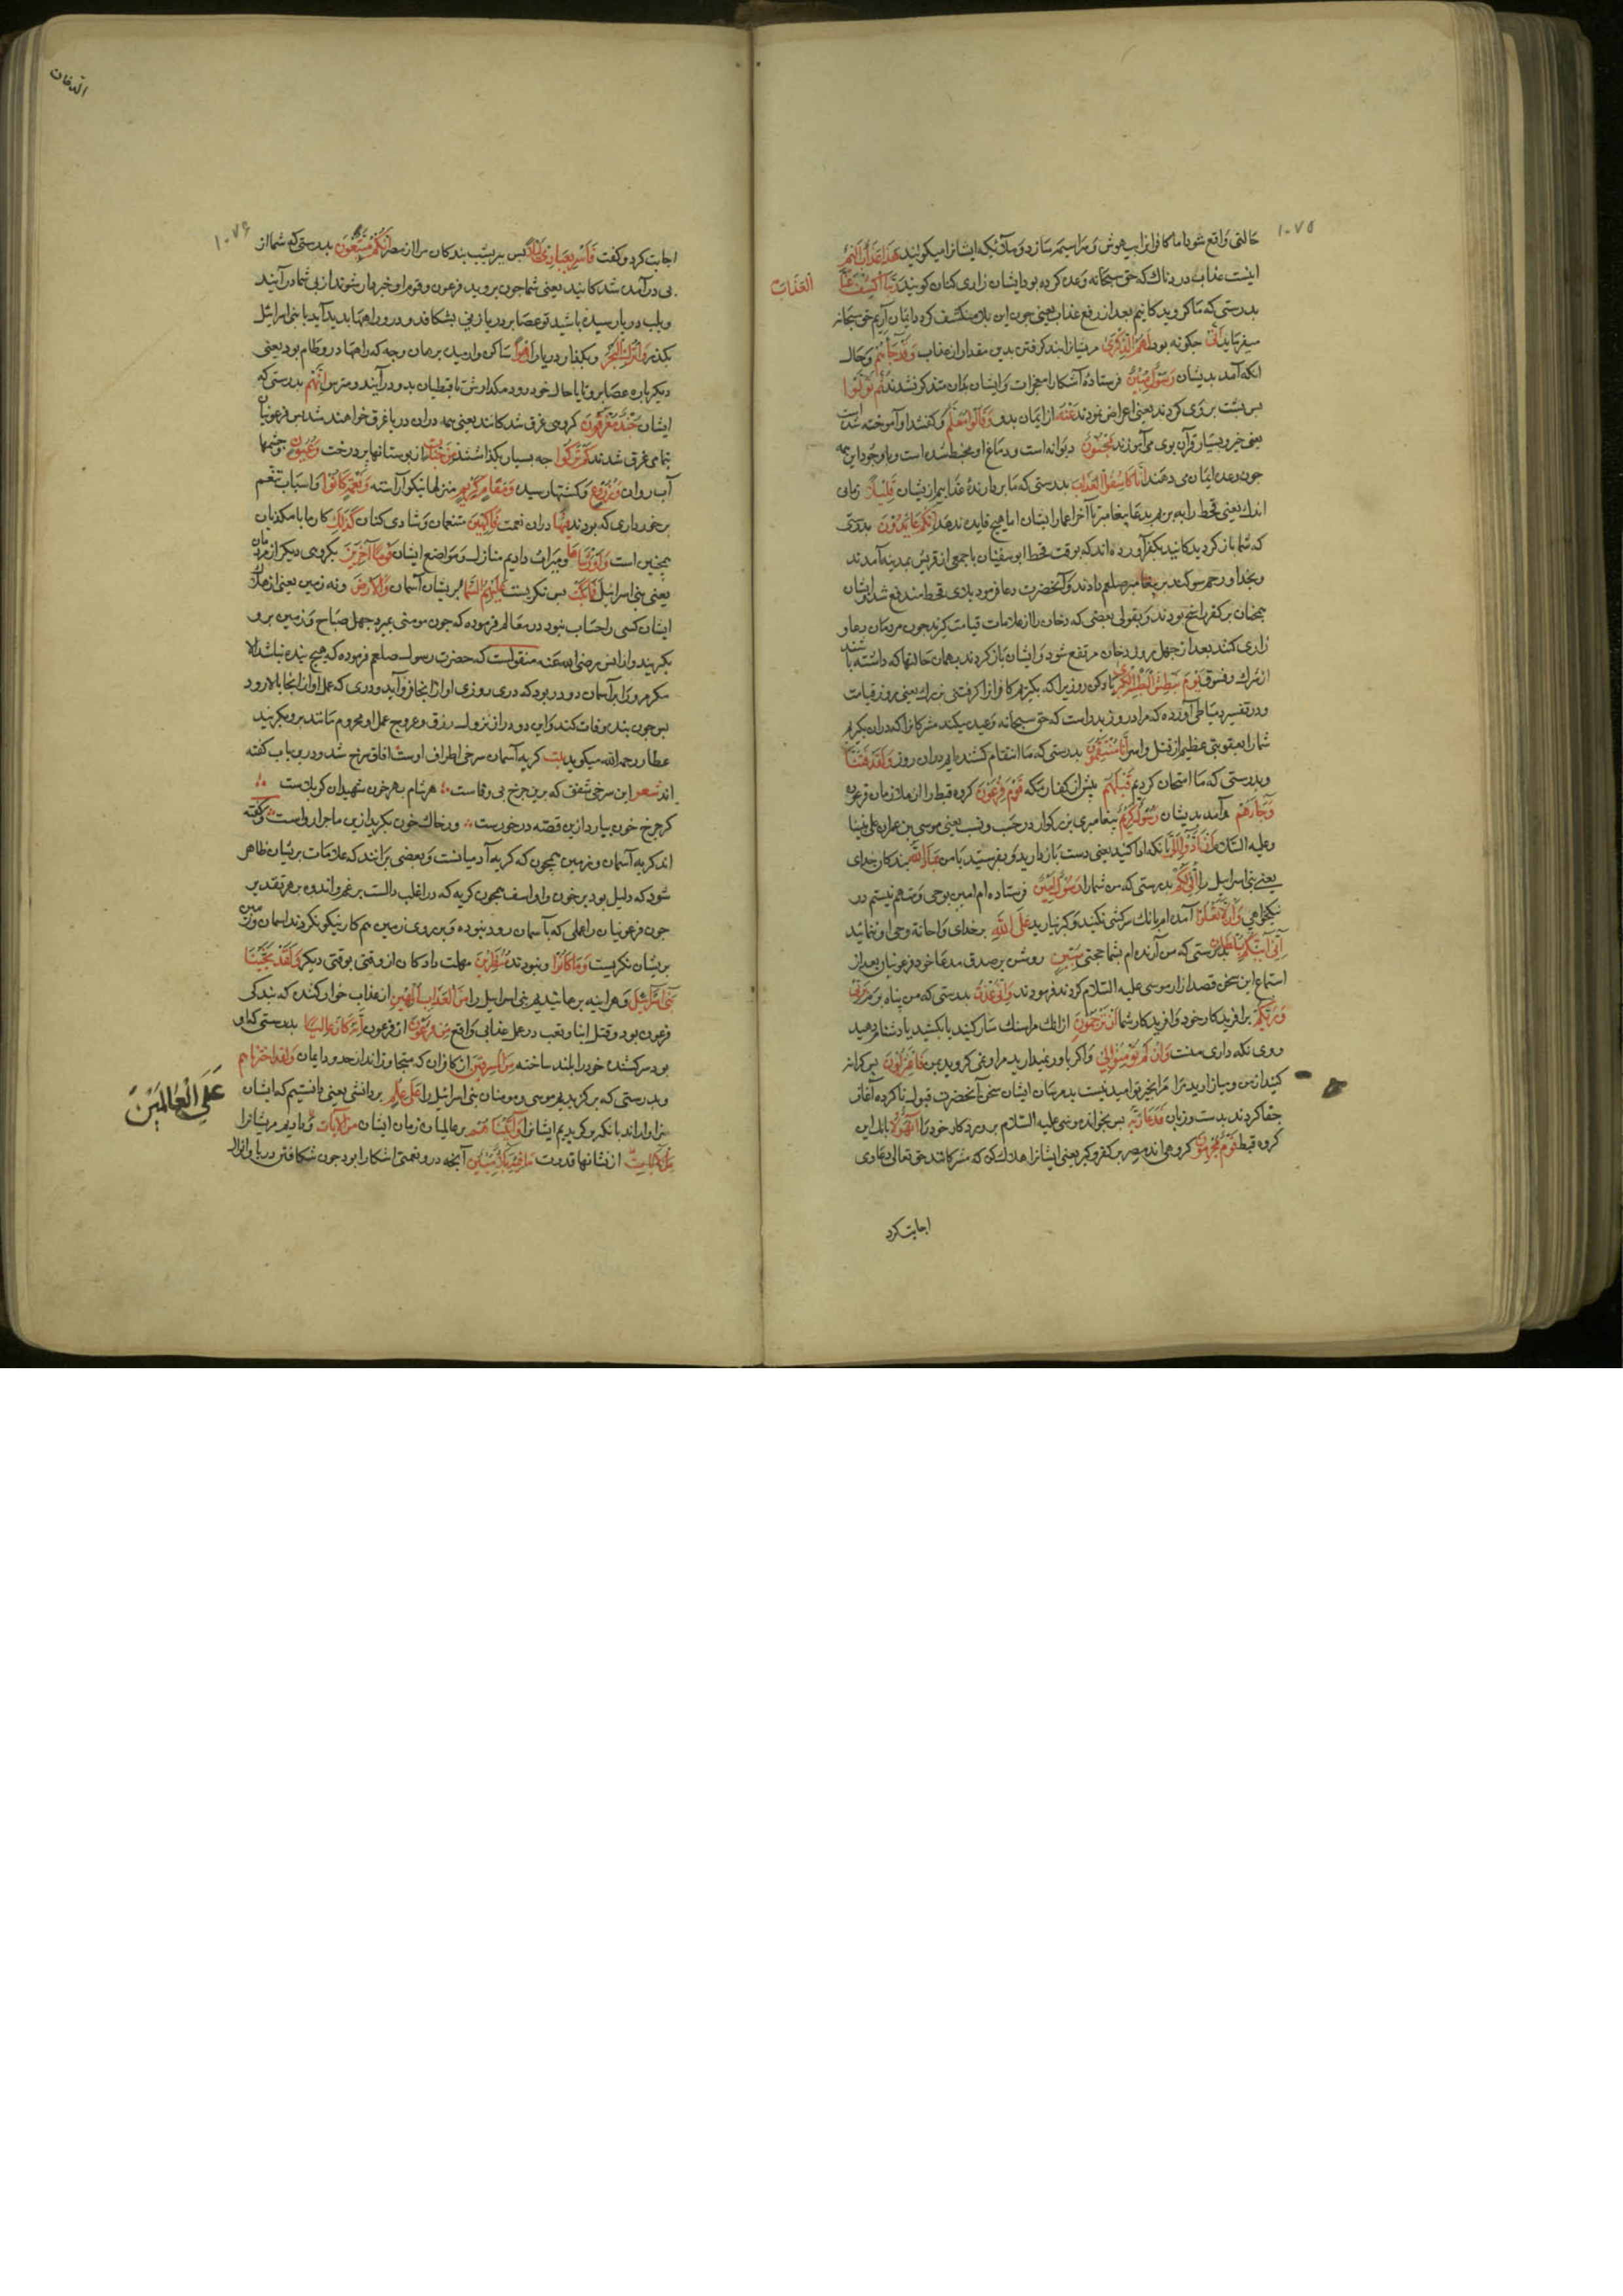 ۱۰۷۵
حالتی واقع شود اما کافرانرا بیهوش و سراسیمه سازد و ملائکه ایشانرا میکویند هذا عذاب الیم
اینست عذاب دردناک که حق سبحانه وعده کرده بود ایشان زاری کنان کویند ربنا اکشف عنا
العذاب
بدرستی که ما کرویدکانیم بعد از رفع عذاب یعنی چون این بلا منکشف کردد ایمان آریم حق سبحانه
میفرماید انی چکونه بود لهم الذکری مرایشانرا پند کرفتن بدین مقدار از عذاب وقد جاءهم وحال
آنکه آمد بدیشان رسول مبین فرستادهٔ آشکارا معجزات و ایشان بدان متذکر نشدند ثم تولوا
پس پشت بروی کردند یعنی اعراض نمودند عنه از ایمان بدو وقالوا معلم وکفتند او آموخته شده است
یعنی جبر و یسار قرآن بوی می آموزند مجنون دیوانه است و دماغ او مخبط شده است و باوجود این همه
چون وعده ایمان می دهند انا کاشفوا العذاب بدرستی که ما بردارندهٔ عذابیم از یشان قلیلا زمانی
اندک یعنی قحط را به برید دعا پیغامبر تا آخر اعمار ایشان اما هیچ فایده ندهد انکم عائدون بدرستی
که شما باز کردیدکانید بکفر آورده اند که بوقت قحط ابوسفیان با جمعی از قریش بمدینه آمدند
وبخدا و رحم سوکند بر پیغامبر صلعم دادند و آنحضرت دعا فرمود بلای قحط مندفع شد و ایشان
همچنان بر کفر راسخ بودند و بقولی بعضی که دخان را از علامات قیامت کیرند چون مردمان دعا و
زاری کنند بعد از چهل روز دخان مرتفع شود و ایشان باز کردند بهمان حالتها که داشته باشند
از شرک و فسوق یوم نبطش البطشة الکبری یاد کن روزیرا که بکیریم کافرانرا کرفتنی بزرک یعنی روز قیامت
ودر تفسیر دمیاطی آورده که مراد روز بدر است که حق سبحانه وعید میکند مشرکانرا که دران بکیرم
شمارا بعقوبتی عظیم از قتل واسر انا منتقمون بدرستی که ما انتقام کشنده ایم دران روز ولقد فتنا
وبدرستی که ما امتحان کردیم قبلهم پیش از کفار مکه قوم فرعون کروه قبط را از ملازمان فرعون
وجاءهم وآمد بدیشان رسول کریم پیغامبری بزرکوار در حسب و نسب یعنی موسی بن عمران علی نبینا
وعلیه السلام ان ادوا الی بآنکه ادا کنید یعنی دست باز دارید و بفرستید با من عباد الله بندکان خدای
یعنی بنی اسرائیل را انی لکم بدرستی که من شمارا رسول امین فرستاده ام امین بوحی و متهم نیستم در
نیکخواهی وان لا تعلوا آمده ام بآنک سرکشی نکنید و کبر نیارید علی الله بر خدای و اهانة وحی او ننمائید
انی آتیکم بسلطان بدرستی که من آرنده ام بشما حجتی مبین روشن بر صدق مدعا خود فرعونیان بعد از
استماع این سخن قصد ازار موسی علیه السلام کردند فرمودند وانی عذت بدرستی که من پناه بردم بربی
وربکم برافریدکار خود و افریدکار شما ان ترجمون ازانک مرا سنک سار کنید یا بکشید یا دشنام دهید
روی نکه داری منست وان لم تؤمنوا لی و اکر باور نمیدارید مرا و نمی کروید بمن فاعتزلون پس کرانه
کنید از من و میازارید مرا مرا بخیر تو امید نیست بد مرسان ایشان سخن آنحضرت قبول ناکرده آغاز
جفا کردند بدست و زبان فدعا ربه پس بخواند موسی علیه السلام پروردکار خود را ان هؤلاء بانک این
کروه قبط قوم مجرمون کروهی اند مصر بر کفر و کبر یعنی ایشانرا هلاک کن که مشرکانند حق تعالی دعاوی
اجابت کرد
الدخان
۱۰۷۶
اجابت کرد وکفت فاسر بعبادی لیلا پس ببر بشب بندکان مرا از مصر انکم متبعون بدرستی که شما از
پی در آمده شدکانید یعنی شما چون بروید فرعون و قوم او خبردار شوند از پی شما در آیند
وبلب دریا رسیده باشید تو عصا بر دریا زنی بشکافد و درو راهها بدید آید با بنی اسرائیل
بکذر واترک البحر وبکذار دریا را رهوا ساکن وارمیده بر همان وجه که راهها درو ظاهر بود یعنی
دیکر باره عصا برو تا با حال خود رود مکذارش تا قبطیان بدو درآیند و مترس انهم بدرستی که
ایشان جند مغرقون کروهی غرق شدکانند یعنی همه دران دریا غرق خواهند شد پس فرعونیان
بتمامی غرق شدند کم ترکوا چه بسیار بکذاشتند من جنات از بوستانها پر درخت وعیون وچشمها
آب روان وزروع وکشتهار رسیده ومقام کریم ومنزلها نیکو آراسته ونعمة کانوا واسباب تنعم
برخورداری که بودند فیها دران نعمت فاکهین متنعمان و شادی کنان کذلک کار ما با مکذبان
همچنین است واورثناها ومیراث دادیم منازل و مواضع ایشان قوما آخرین بکروهی دیکر از مردمان
یعنی بنی اسرائیل فما بکت پس نکریست علیهم السماء بریشان آسمان والارض ونه زمین یعنی از هلاک
ایشان کسی را حساب نبود در معالم فرموده که چون مومنی بمیرد چهل صباح و زمین برو
بکریند و از انس رضی الله عنه منقولست که حضرت رسول صلعم فرموده که هیچ بنده نباشد الا
مکر مرورا بر آسمان دو در بود که دری روزی او از انجا فرو آید و دری که عمل او از انجا بالا رود
پس چون بنده وفات کند و این دو در از نزول رزق و عروج عمل او محروم مانند برو بکریند
عطا رحمه الله میکوید بکت کریه آسمان سرخی اطراف اوست آفاق سرخ شد و درین باب کفته
اند شعر این سرخی شفق که برین چرخ بی وفاست هر شام بهر خون شهیدان کربلاست
کر چرخ خون ببارد ازین قصه در خورست ور خاک خون بکرید ازین ماجرا رواست وکفته
اند کریه آسمان و زمین همچون که کریه آدمیانست و بعضی برانند که علامات بریشان ظاهر
شود که دلیل بود بر خون و اواسف همچون کریه که در اغلب دالست بر غم و اندوه بر هر تقدیر
چون فرعونیان را عملی که بآسمان رود نبوده و بر روی زمین هم کار نیکو نکردند آسمان و زمین
بریشان نکریست وما کانوا ونبودند منظرین مهلت دادکان از وقتی بوقتی دیکر ولقد نجینا
بنی اسرائیل وهرآینه برهانیدیم بنی اسرائیل را من العذاب المهین از عذاب خوار کننده که بندکی
فرعون بود و قتل ابنا و تعب در عمل عذابی واقع من فرعون از فرعون انه کان عالیا بدرستی که او
بود سرکشنده خود را بلند ساخته من المسرفین از کافران که متجاوزانند از حدود ایمان ولقد اخترناهم
وبدرستی که برکزیدیم موسی و مومنان بنی اسرائیل را علی علم بردانشی یعنی دانستیم که ایشان
علی العالمین
سزاوارند بآنکه برکزیدیم ایشانرا وآتیناهم بر عالمیان زمان ایشان من الآیات ودادیم مریشانرا
از نشانها قدرت ما فیه بلاء مبین آنچه درو نعمتی آشکارا بود چون شکافتن دریا و انزال